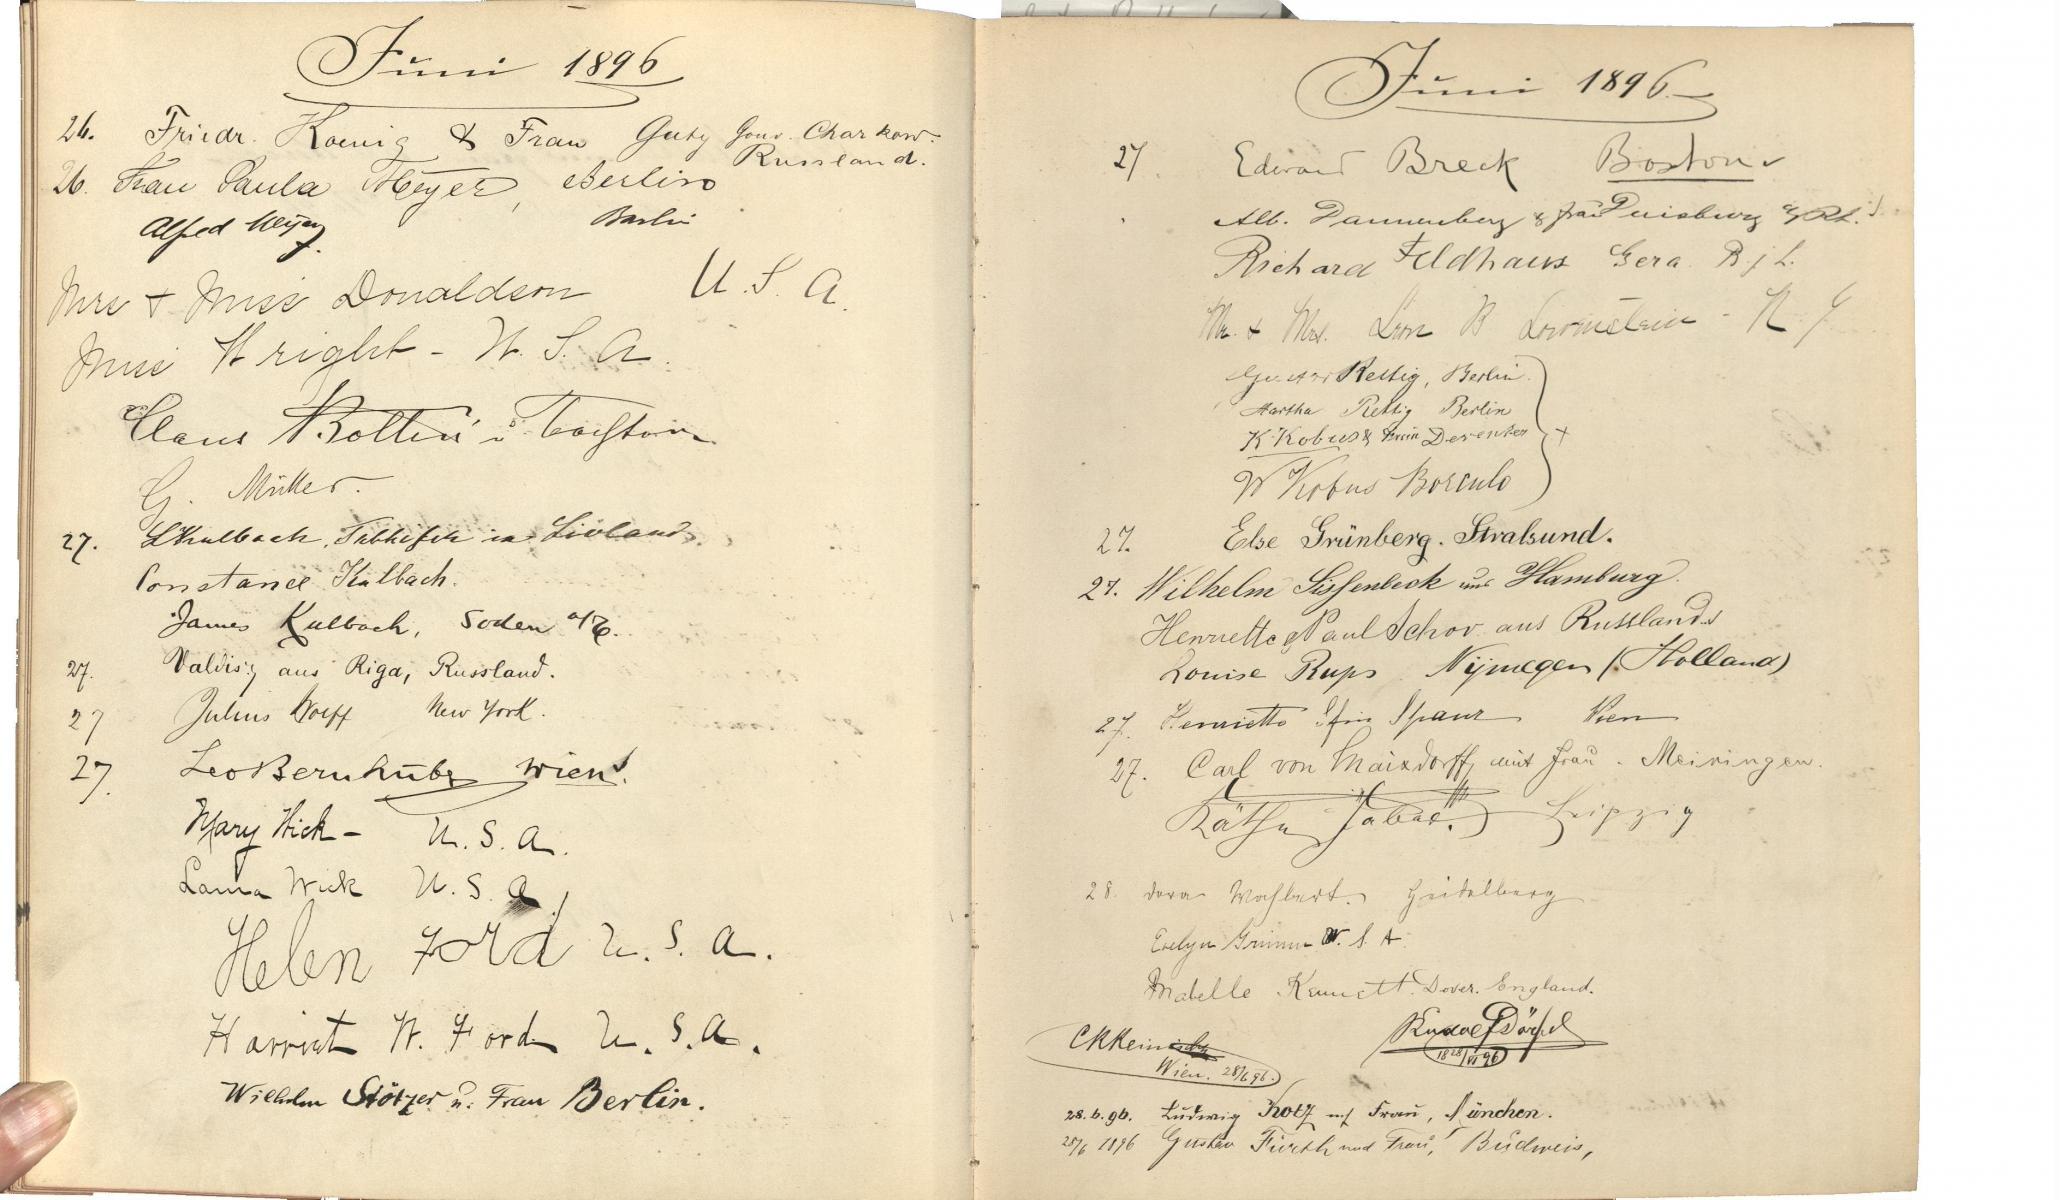 Juni 1896
26. Friedr. Koenig & Frau Guty Gouv. Charkow.
Russland.
26. Frau Paula Meyer, Berlin
Alfred Meyer Berlin
Mrs + Miss Donaldson U. S. A.
Miss Wright - U. S. A.
Claus Bolten u
G. Müller.
27. Kulbach, in Livland.
Constance Kulbach.
James Kulbach, Soden a/T.
27. aus Riga, Russland.
27 Julius Wolff New York.
27. Leo Bernhuber Wien
Mary Wick - U. S. A.
Laura Wick U. S. A.
Helen Ford U. S. A.
Harriet W. Ford U. S. A.
Wilhelm Stötzer u. Frau Berlin.
Juni 1896
27. Edward Breck Boston
Alb. Dannenberg & Frau Duisburg a/Rh.
Richard Feldhaus Gera R j L.
Mr. & Mrs. Leon B Lowenstein - N. Y
Gustav Rettig, Berlin.
Martha Rettig Berlin
K. Kobus & Deventer
W Kobus Borculo
27. Else Grünberg. Stralsund.
27. Wilhelm Sissenbeck aus Hamburg.
Henriette Paul Schor aus Russland
Louise Rups Nijmegen (Holland)
27. Henriette Spaur Wien
27. Carl von mit Frau. Meiringen.
Käthe Leipzig
28. Dora Heidelberg
Evelyn Grimm U. S. A.
Mabelle Kennett. Dover. England.
Wien. 28/6 96.
Rudolf
28/VI 96
28.6.96. Ludwig Kotz mit Frau, München.
28/6 1896 Gustav Fürth und Frau, Budweis,